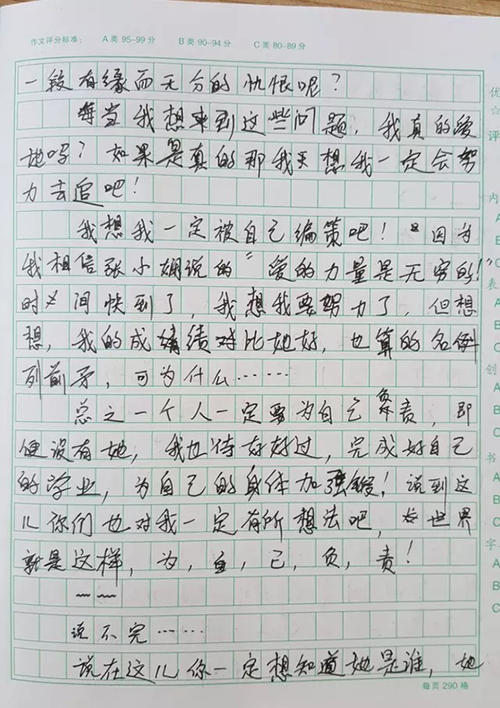 作文评分标准： A 类 95-99 分 B 类 90-94 分 C 类 80-89 分
一段有缘而无分的仇恨呢？
每当我想来到这些问题，我真的爱
她吗？如果是真的那我想我一定会努
力去追吧！
我想我一定被自己鞭策吧！“因为
我相信张小娴说的“爱的力量是无穷的！”
时间快到了，我想我要努力了，但想
想，我的成绩对比她好，也算的名例
列前矛，可为什么……
总之一个人一定要为自己负责，即
便没有她，我也待好好过，完成好自己
的学业，为自己的身体加强锻！说到这
儿你们也对我一定有所想法吧，世界
就是这样，为，自，己，负，责！
说不完……
说在这儿你一定想知道她是谁，她
每页 290 格
优
☆
评
内
A
B
C
表
A
B
C
创
A
B
C
书
A
B
C
字
A
B
C